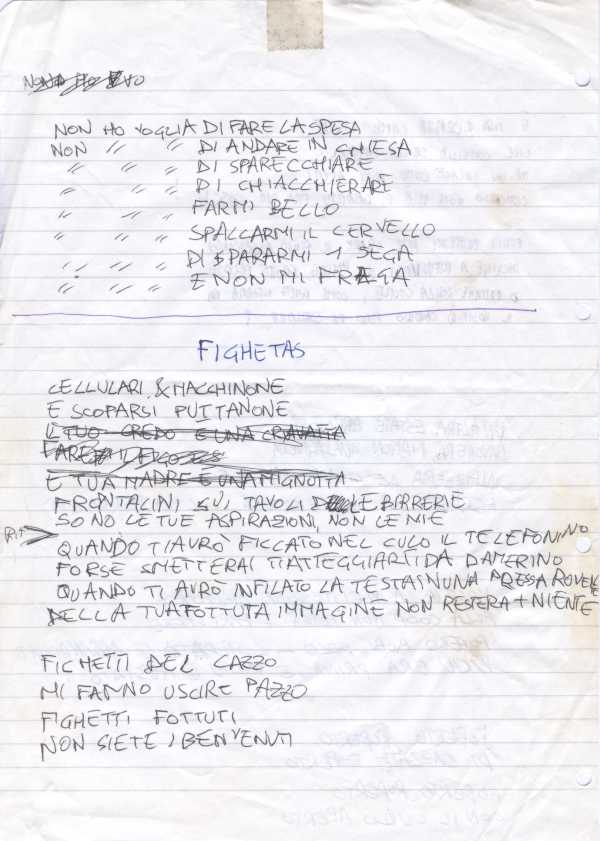 NON HO VOGLIA DI FARE LA SPESA
NON " " DI ANDARE IN CHIESA
" " " DI SPARECCHIARE
" " " DI CHIACCHIERARE
" " " FARMI BELLO
" " " SPALLARMI IL CERVELLO
" " " DI SPARARMI 1 SEGA
" " " E NON MI FREGA
FIGHETAS
CELLULARI & MACCHINONE
E SCOPARSI PUTTANONE
IL TUO CREDO E UNA CRAVATTA
E TUA MADRE E UNA MIGNOTTA
FRONTALINI SUI TAVOLI DELLE BIRRERIE
SONO LE TUE ASPIRAZIONI, NON LE MIE
RIT QUANDO TI AVRÒ FICCATO NEL CULO IL TELEFONINO
FORSE SMETTERAI TI ATTEGGIARTI DA DAMERINO
QUANDO TI AVRÒ INFILATO LA TESTA IN UNA PRESSA ROVENTE
DELLA TUA FOTTUTA IMMAGINE NON RESTERA + NIENTE
FICHETTI DEL CAZZO
MI FANNO USCIRE PAZZO
FIGHETTI FOTTUTI
NON SIETE I BENVENUTI